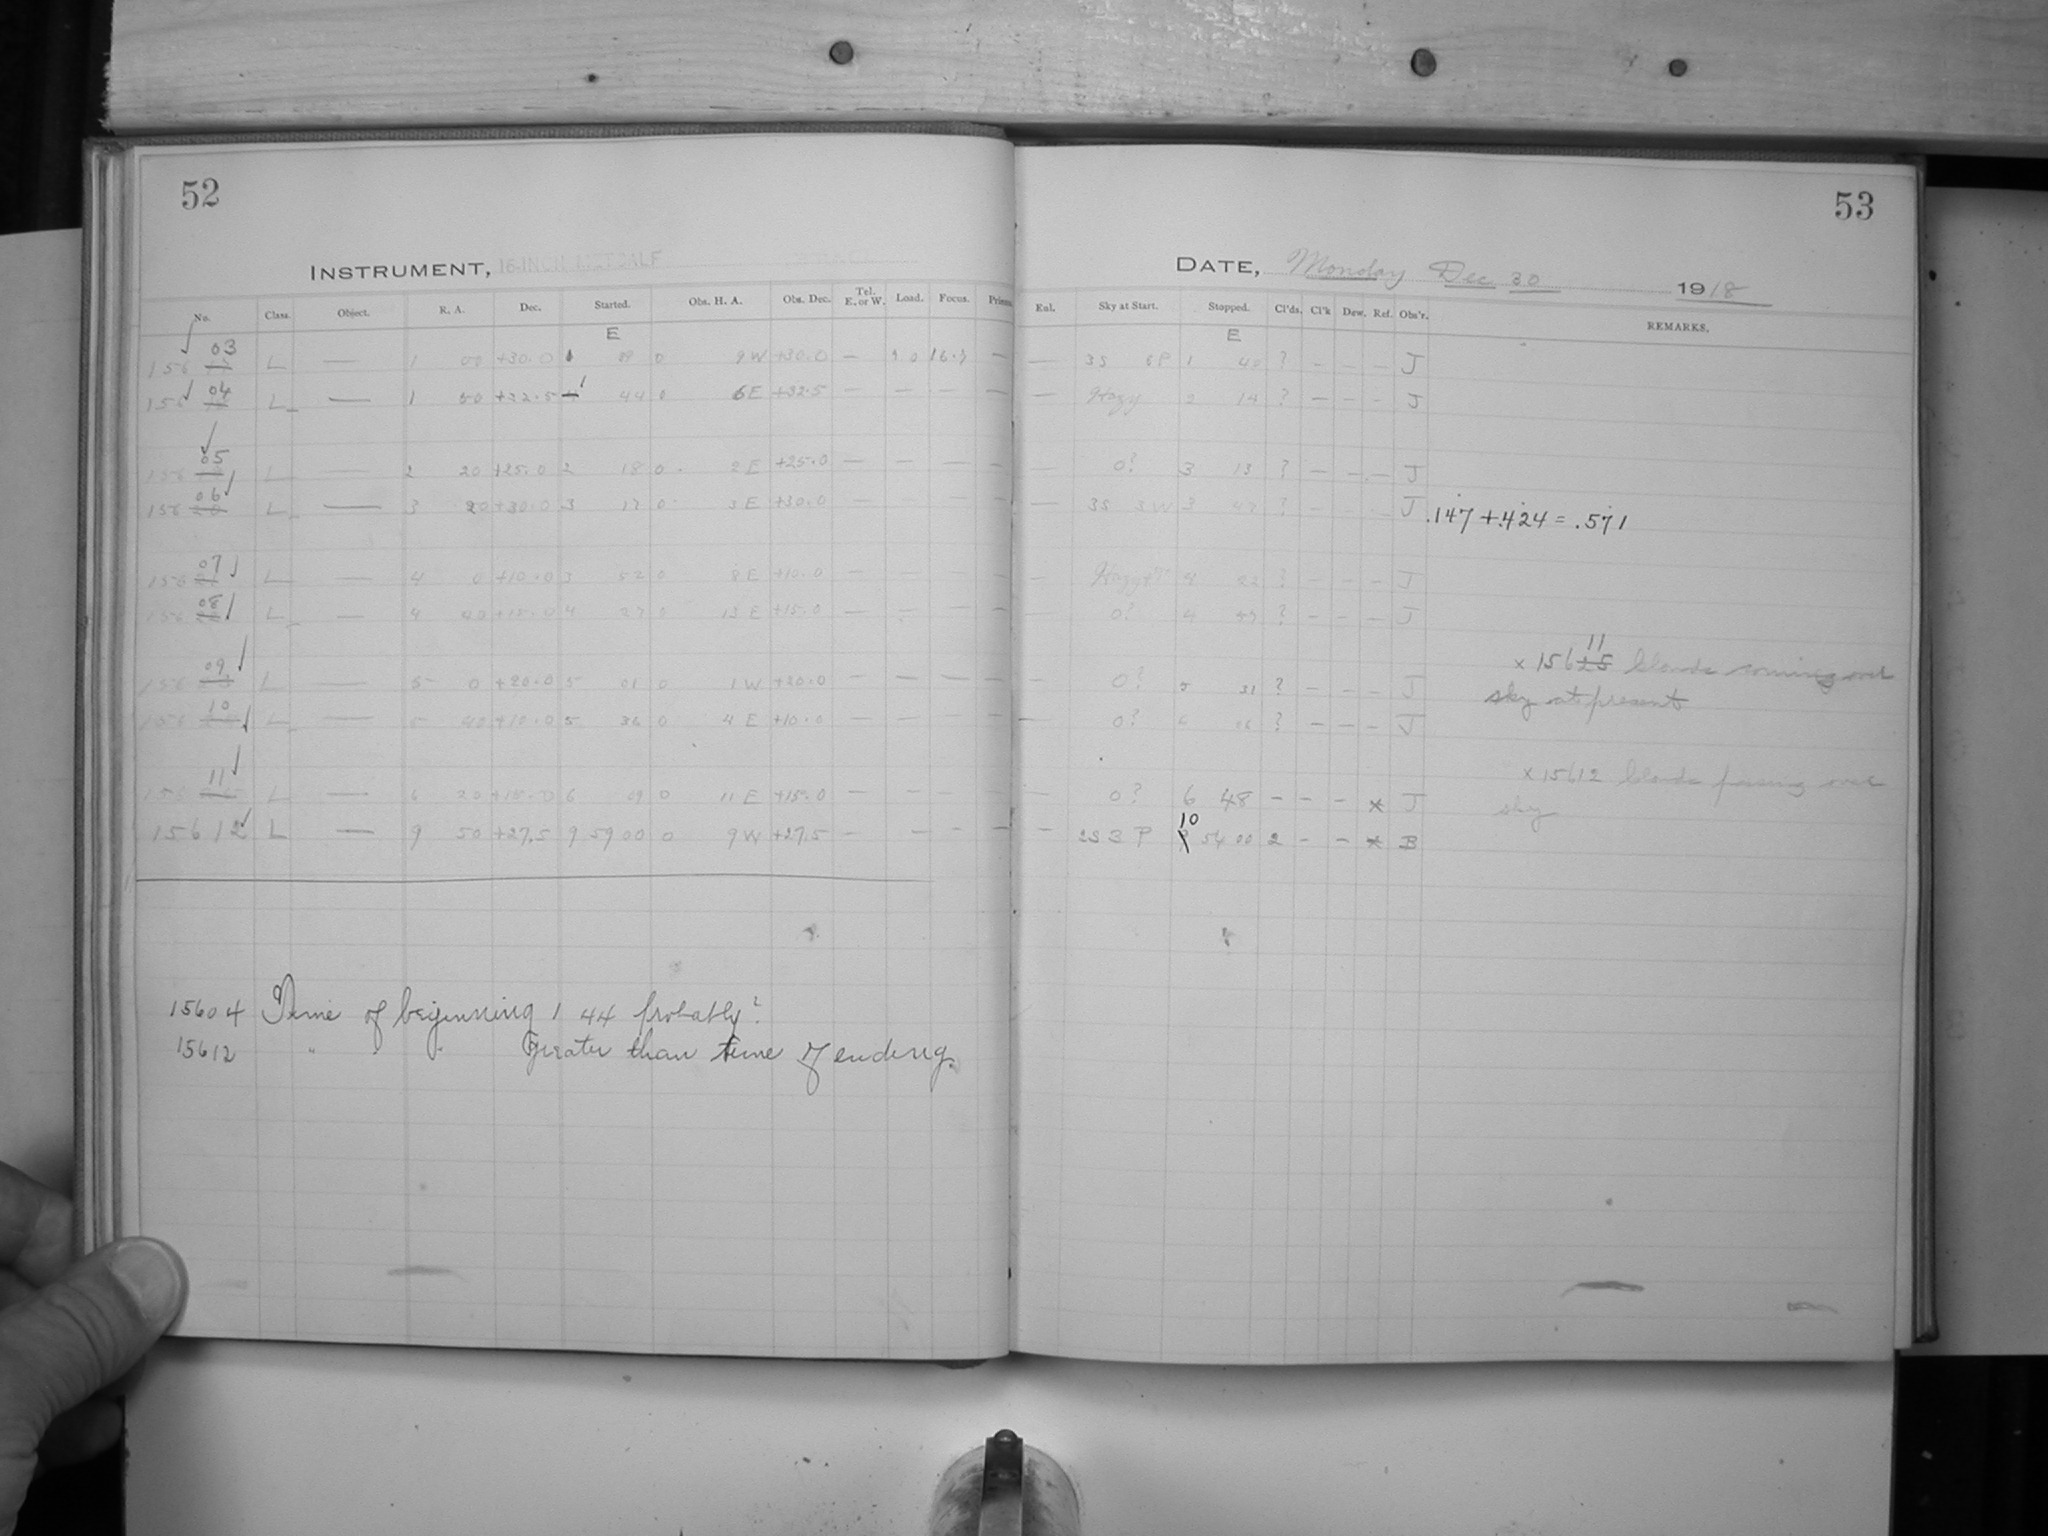 52
INSTRUMENT, 16-INCH METCALF
No. Class. Object. R. A. Dec. Started. Obs. H. A. Obs. Dec. Tel. E. or W. Load. Focus.
E
03
156 L — 1 00 +30.0 1 0 9 W +30.0 — 16.7 —
04
156 L — 1 50 +32.5 1 44 0 6 E +32.5 — — — —
05
156 L — 2 20 +25.0 2 18 0 2 E +25.0 — — — —
06
156 20 L — 3 20 +30.0 3 17 0 3 E +30.0 — — —
07
156 L — 4 0 +10.0 3 52 0 8 E +10.0 — — — —
08
156 L — 4 40 +15.0 4 27 0 13 E +15.0 — — — —
09
156 L — 5 0 +20.0 5 01 0 1 W +20.0 — — — —
10
156 L — 5 40 +10.0 5 36 0 4 E +10.0 — — — —
11
156 L — 6 20 +15.0 6 09 0 11 E +15.0 — — — —
15612 L — 9 50 +27.5 9 59 00 0 9 W +27.5 — — — —
15604 Time of beginning 1 44 probably?
15612 " " " Greater than time of ending.
53
DATE, Monday Dec 30 1918
Enl. Sky at Start. Stopped. Cl'ds. Cl'k Dew. Ref. Obs'r. REMARKS.
E
— 3S 6P 1 40 ? — — — J
— Hazy 2 14 ? — — — J
— 0? 3 13 ? — — — J
— 3S 3W 3 47 ? — — — J .147 + .424 = .571
— Hazy 4 22 ? — — — J
— 0? 4 57 ? — — — J
11
x 15625 Clouds coming over
— 0? 5 31 ? — — — J
sky at present
— 0? 6 06 ? — — — J
x 15612 Clouds passing over
— 0? 6 48 — — — x J
sky
10
— 2S 3 P 9 54 00 2 — — x B